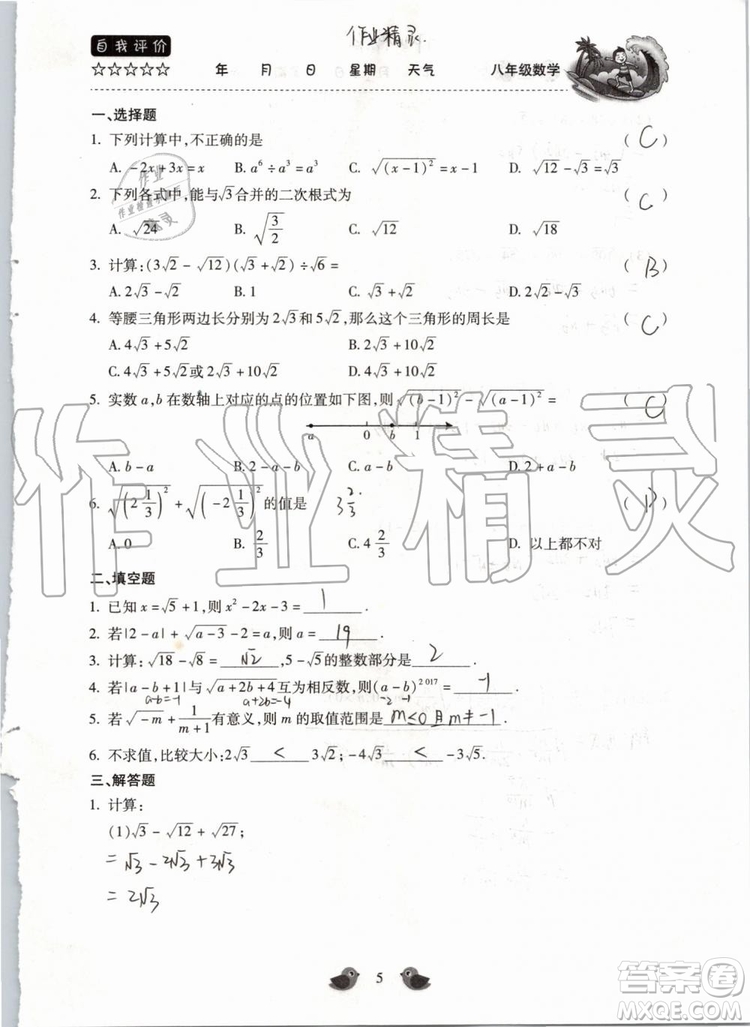 作业精灵.
自我评价
☆☆☆☆☆ 年 月 日 星期 天气 八年级数学
一、选择题
1. 下列计算中,不正确的是 ( C )
A. −2x+3x=x B. a⁶÷a³=a³ C. √(x−1)²=x−1 D. √12−√3=√3
2. 下列各式中,能与√3合并的二次根式为 ( C )
A. √24 B. √(3/2) C. √12 D. √18
3. 计算:(3√2−√12)(√3+√2)÷√6= ( B )
A. 2√3−√2 B. √2 C. √3+√2 D. 2√2−√3
4. 等腰三角形两边长分别为2√3和5√2,那么这个三角形的周长是 ( C )
A. 4√3+5√2 B. 2√3+10√2
C. 4√3+5√2或2√3+10√2 D. 4√3+10√2
5. 实数a,b在数轴上对应的点的位置如下图,则√(b−1)²−√(a−1)²= ( C )
a 0 b 1
A. b−a B. 2−a−b C. a−b D. 2+a−b
6. √(2 1/3)²+√(−2 1/3)²的值是 3 2/3 ( D )
A. 0 B. 2/3 C. 4 2/3 D. 以上都不对
二、填空题
1. 已知x=√5+1,则x²−2x−3= 1 .
2. 若|2−a|+√(a−3)−2=a,则a= 19 .
3. 计算:√18−√8= √2 ,5−√5的整数部分是 2 .
4. 若|a−b+1|与√(a+2b+4)互为相反数,则(a−b)²⁰¹⁷= −1 .
a−b=−1 a+2b=−4 −2 −1
5. 若√−m+1/(m+1)有意义,则m的取值范围是 m≤0且m≠−1 .
6. 不求值,比较大小:2√3 < 3√2;−5√3 < −3√5.
三、解答题
1. 计算:
(1)√3−√12+√27;
=√3−2√3+3√3
=2√3
5
答案圈
MXQE.COM
作业精灵